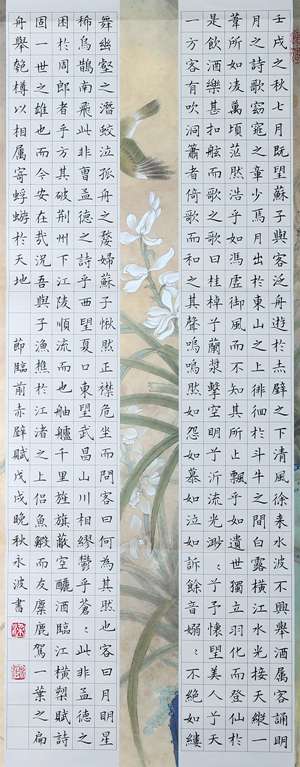 壬戌之秋七月既望蘇子與客泛舟遊於赤壁之下清風徐來水波不興舉酒屬客誦明
月之詩歌窈窕之章少焉月出於東山之上徘徊於斗牛之間白露橫江水光接天縱一
葦所如凌萬頃茫然浩乎如馮虛御風而不知其所止飄乎如遺世獨立羽化而登仙於
是飲酒樂甚扣舷而歌之歌曰桂棹子蘭槳擊空明兮泝流光渺:兮予懷望美人兮天
一方客有吹洞簫者倚歌而和之其聲嗚嗚然如怨如慕如泣如訴餘音嫋:不絕如縷
舞幽壑之潛蛟泣孤舟之嫠婦蘇子愀然正襟危坐而問客曰何為其然也客曰月明星
稀烏鵲南飛此非曹孟德之詩乎西望夏口東望武昌山川相繆鬱乎蒼:此非孟德之
困於周郎者乎方其破荊州下江陵順流而也舳艫千里旌旗蔽空釃酒臨江橫槊賦詩
固一世之雄也而今安在哉況吾與子漁樵於江渚之上侶魚鰕而友麋鹿駕一葉之扁
舟舉匏樽以相屬寄蜉蝣於天地 節臨前赤壁賦戊戌晚秋永波書